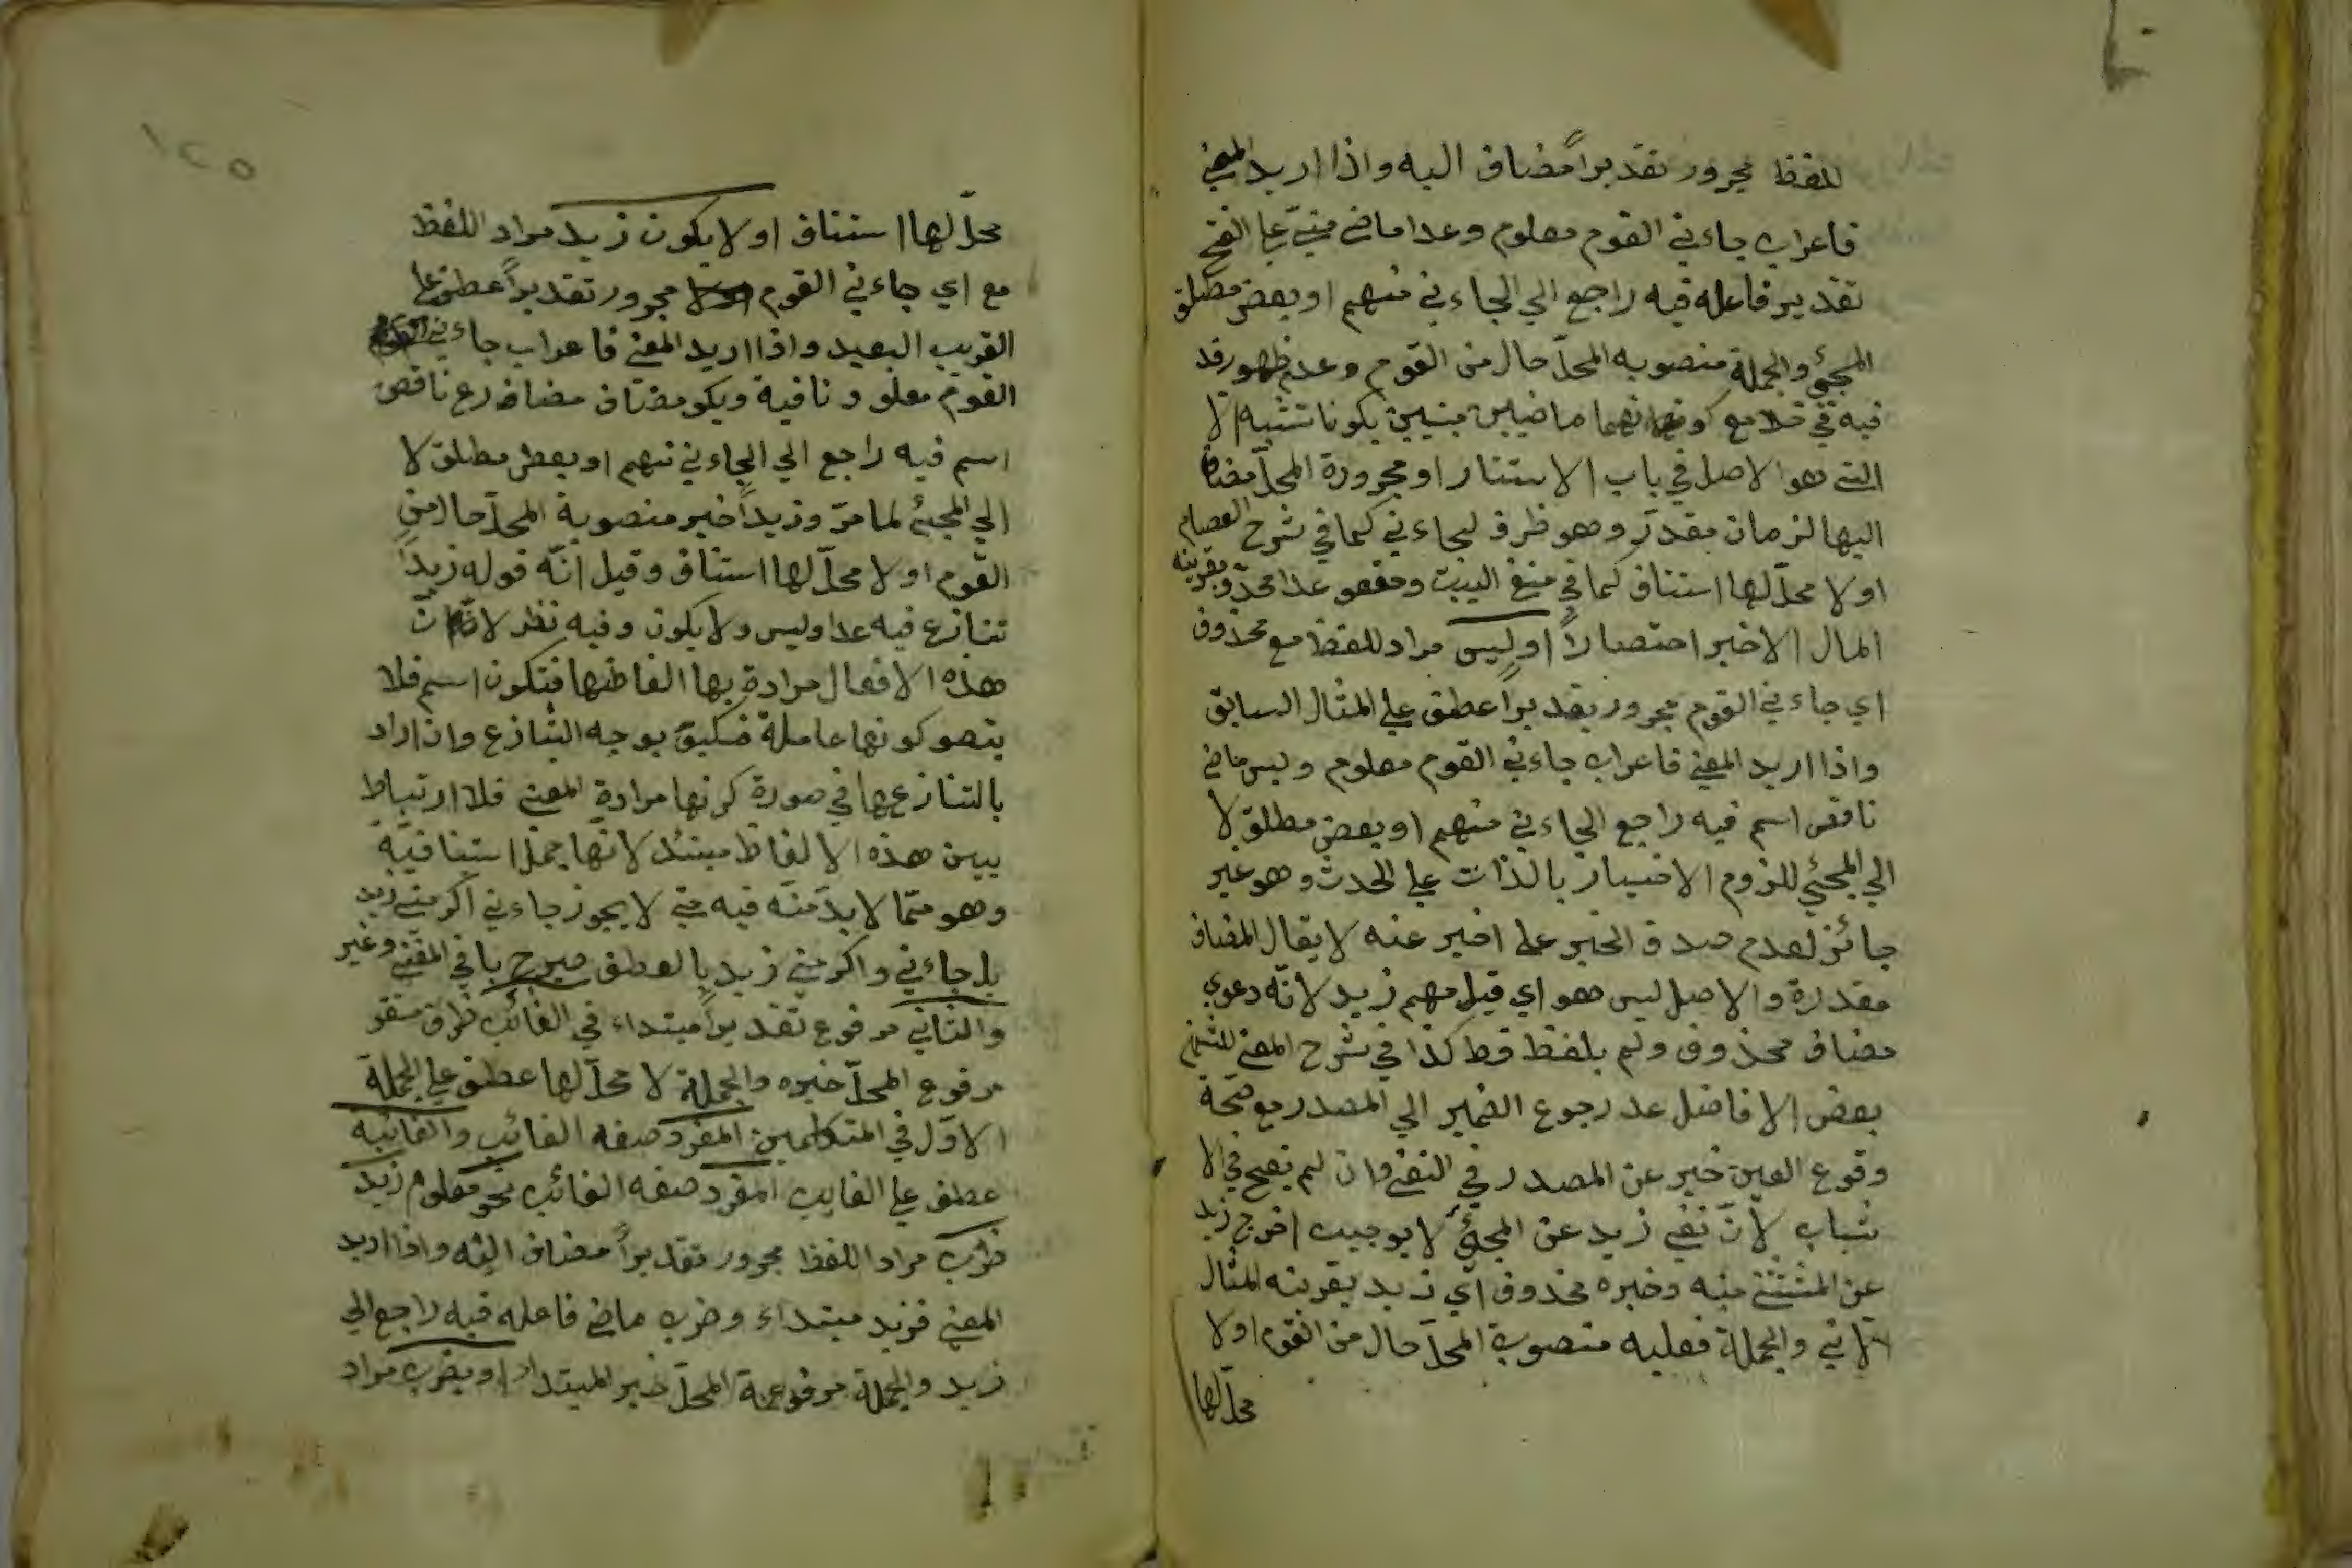 للفظ مجرور تقديراً مضاف اليه واذا اريد المعني
فاعراب جاءني القوم معلوم وعدا ماضي مبنيّ علي الفتح
تقدير فاعله فيه راجع الي الجاءني منهم او بعض مطلق
المجئ والجملة منصوبه المحلّ حال من القوم وعدم ظهور قد
فيه مع كونهما ماضيين يكونا تشبه الا
التي هو الاصل في باب الاستثناء او مجرورة المحلّ مضاف
اليها لزمان مقدّر وهو ظرف لجاءني كما في شرح العصام
او لا محلّ لها استئناف كما في ومفعو عدا محذوف بقرينه
المال الاخير اختصاراً او ليس مراد للفظ مع محذوف
اي جاءني القوم مجرور تقديراً عطف علي المثال السابق
واذا اريد المعني فاعراب جاءني القوم معلوم وليس ماضي
ناقص اسم فيه راجع الجاءني منهم او بعض مطلق لا
الي المجئي للزوم الاخبار بالذات علي الحدث وهو غير
جائز لعدم صدق الخبر علي اخبر عنه لا يقال المضاف
مقدرة والاصل ليس هو اي قبل منهم زيد لانّه دعوي
مضاف محذوف ولم يلفظ قط كذا في شرح المغني للشمني
بعض الافاضل عد رجوع الضمير الي المصدر مع صحّة
وقوع العين خبر عن المصدر في النفي وان لم تصح في الا
ثبات لانّ نفي زيد عن المجئ لا يوجب اخرج زيد
عن المثتثني منه وخبره محذوف اي زيد بقرينه المثال
الاتي والجملة فعليه منصوبة المحلّ حال من القوم اولا
محلّ لها
١٢٥
محلّ لها استئناف او لا يكون زيد مراد اللفظ
مع اي جاءني القوم مجرور تقديراً عطف علي
القريب البعيد واذا اريد المعني فاعراب جاءني
القوم معلو و نافية ويكو مضارع ناقص
اسم فيه راجع الي الجاءني منهم او بعض مطلق لا
الي المجئ لما مرّ وزيداً خبر منصوبة المحلّ حال من
القوم او لا محلّ لها استئناف وقيل انّه قوله زيداً
تنازع فيه عدا وليس ولا يكون وفيه نظر لانّ
هذه الافعال مرادة بها الفاظها فتكون اسم فلا
يتصو كونها عاملة فكيف يوجه التنازع وان اراد
بالتنازع ها في صورة كونها مرادة المعني فلا ارتباط
بين هذه الالفاظ لانّها جمل استينافيّة
وهو ممّا لا بدّ منه فيه حتي لا يجوز جاءني اكرمني زيد
بل جاءني واكرمني زيد بالعطف صرح با في المغني وغير
والثاني مرفوع تقديراً مبتداء في الغائب ظرف مستقر
مرفوع المحلّ خبره والجملة لا محلّ لها عطف علي الجملة
الاوّل في المتكلمين المفرد صفه الغائب والغائبه
عطف علي الغايب المفرد صفه الغائب نحو معلوم زيد
ضرب مراد اللفظ مجرور تقديراً مضاف اليه واذا اريد
المعني فزيد مبتداء وضرب ماضي فاعله فيه راجع الي
زيد والجملة مرفوعة المحلّ خبر المبتداء او يضرب مراد